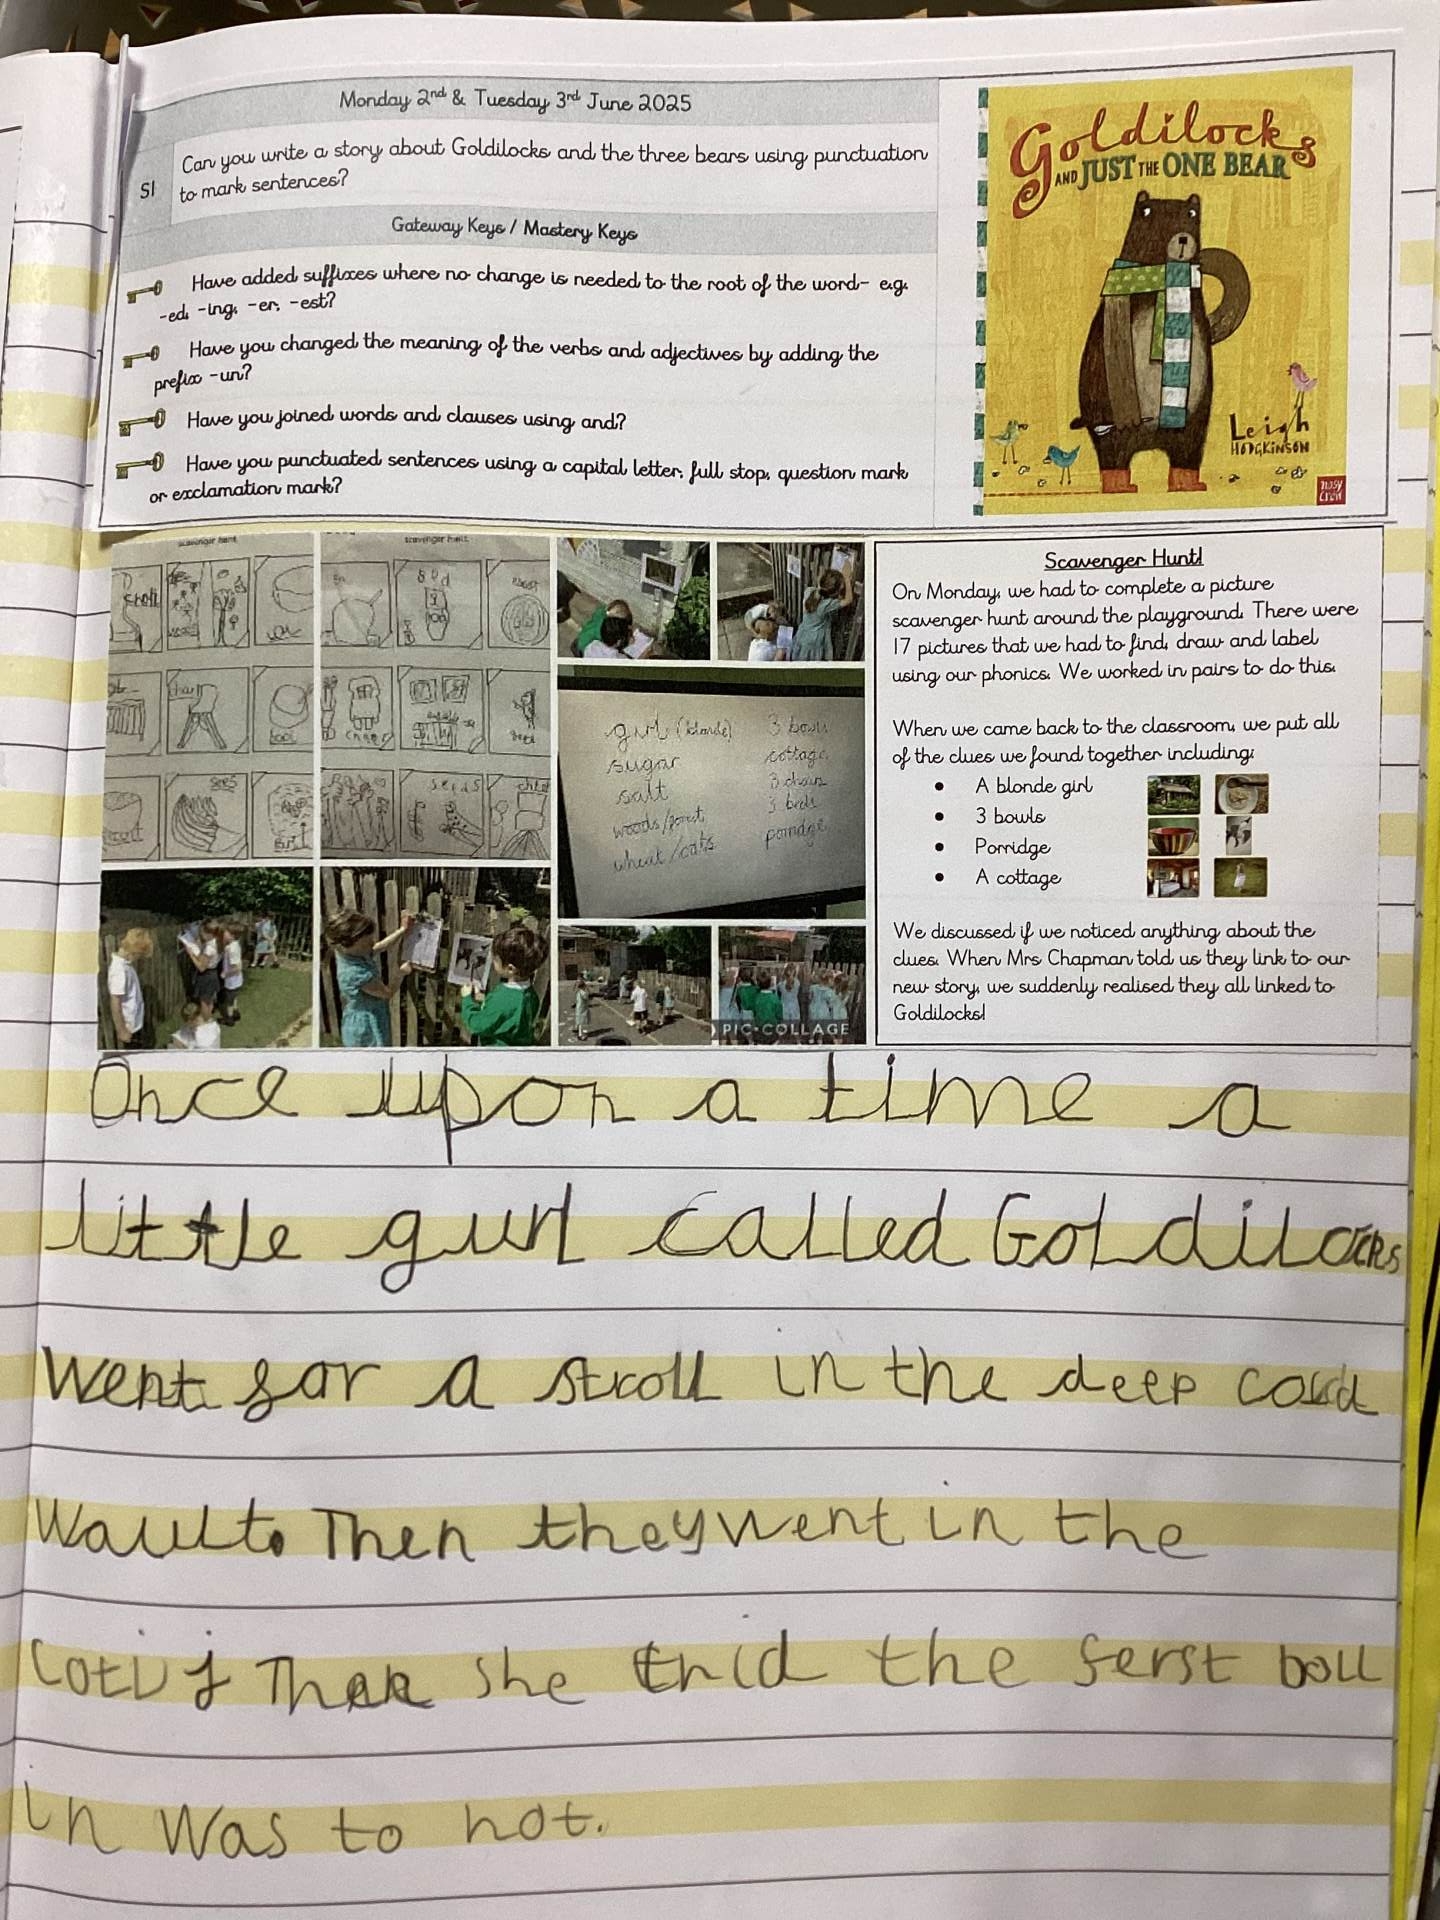 Monday 2nd & Tuesday 3rd June 2025
SI
Can you write a story about Goldilocks and the three bears using punctuation
to mark sentences?
Gateway Keys / Mastery Keys
Have added suffixes where no change is needed to the root of the word- e.g.
-ed, -ing, -er, -est?
Have you changed the meaning of the verbs and adjectives by adding the
prefix -un?
Have you joined words and clauses using and?
Have you punctuated sentences using a capital letter, full stop, question mark
or exclamation mark?
Goldilocks
AND JUST THE ONE BEAR
Leigh
HODGKINSON
nosy
crow
scavenger hunt
scavenger hunt
girl (blonde) 3 bowls
sugar cottage
salt 3 chairs
woods/forest 3 beds
wheat/oats porridge
PIC•COLLAGE
Scavenger Hunt!
On Monday, we had to complete a picture
scavenger hunt around the playground. There were
17 pictures that we had to find, draw and label
using our phonics. We worked in pairs to do this.
When we came back to the classroom, we put all
of the clues we found together including:
• A blonde girl
• 3 bowls
• Porridge
• A cottage
We discussed if we noticed anything about the
clues. When Mrs Chapman told us they link to our
new story, we suddenly realised they all linked to
Goldilocks!
Once upon a time a
little gurl called Goldilocks
went for a stroll in the deep
Then they went in the
Then she the ferst boll
in was to hot.